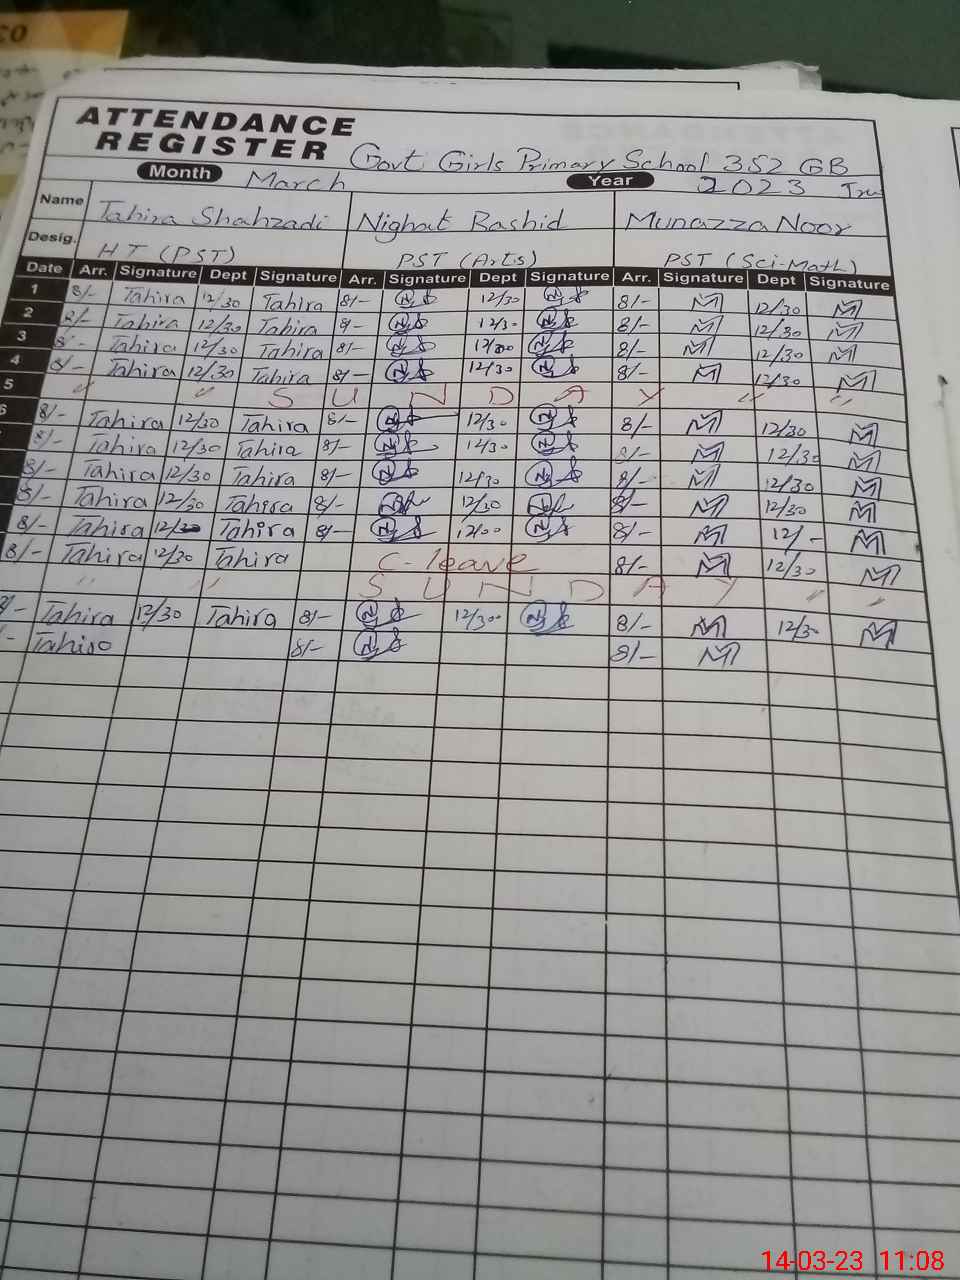 ATTENDANCE
REGISTER Govt Girls Primary School 352 GB
Month March Year 2023
Name Tahira Shahzadi Nighat Rashid Munazza Noor
Desig. HT (PST) PST (Arts) PST (Sci-Math)
Date Arr. Signature Dept Signature Arr. Signature Dept Signature Arr. Signature Dept Signature
1 8/- Tahira 12/30 Tahira 8/- 12/30 8/- 12/30
2 8/- Tahira 12/30 Tahira 8/- 12/30 8/- 12/30
3 8/- Tahira 12/30 Tahira 8/- 12/30 8/- 12/30
4 8/- Tahira 12/30 Tahira 8/- 12/30 8/- 12/30
5 " " S U N D A Y " "
6 8/- Tahira 12/30 Tahira 8/- 12/30 8/- 12/30
8/- Tahira 12/30 Tahira 8/- 12/30 8/- 12/30
8/- Tahira 12/30 Tahira 8/- 12/30 8/- 12/30
8/- Tahira 12/30 Tahira 8/- 12/30 8/- 12/30
8/- Tahira Tahira 8/- 12/00 8/- 12/-
8/- Tahira 12/30 Tahira C-leave 8/- 12/30
" " S U N D A Y " "
Tahira 12/30 Tahira 8/- 12/30 8/- 12/30
8/- 8/-
14-03-23 11:08